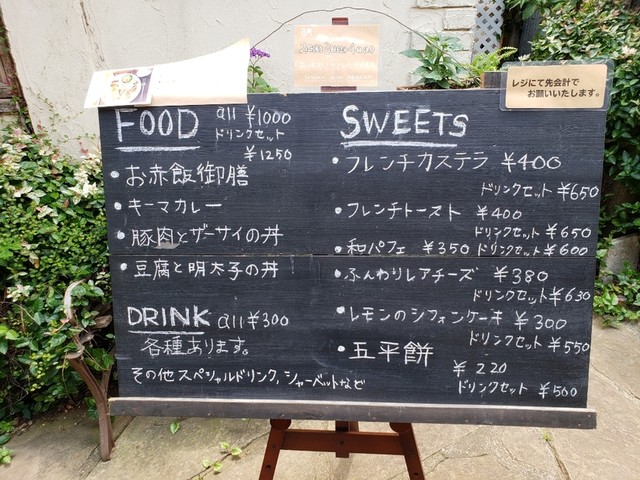 レジにて先会計で
お願いいたします。
FOOD all ¥1000
ドリンクセット
¥1250
・お赤飯御膳
・キーマカレー
・豚肉とザーサイの丼
・豆腐と明太子の丼
DRINK all ¥300
各種あります。
その他スペシャルドリンク,シャーベットなど
SWEETS
・フレンチカステラ ¥400
ドリンクセット ¥650
・フレンチトースト ¥400
ドリンクセット ¥650
・和パフェ ¥350 ドリンクセット ¥600
・ふんわりレアチーズ ¥380
ドリンクセット ¥630
・レモンのシフォンケーキ ¥300
ドリンクセット ¥550
・五平餅
¥220
ドリンクセット ¥500